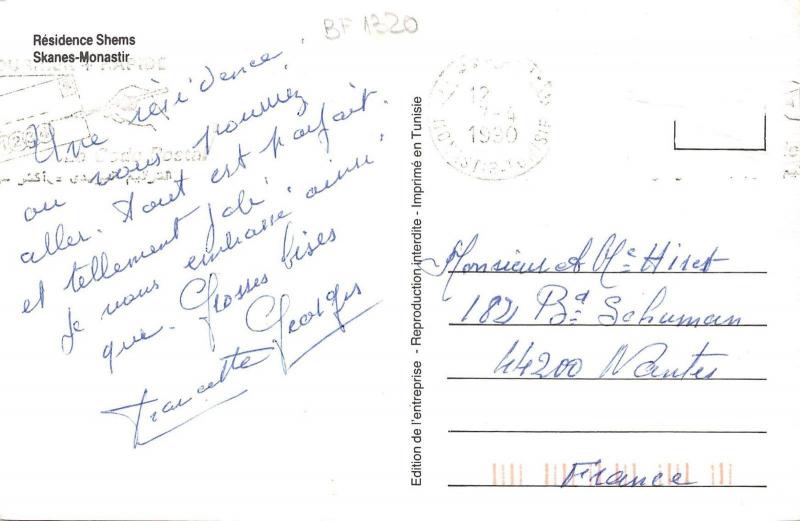 BF 1320
Résidence Shems
Skanes-Monastir
Une résidence
ou vous pourrez
aller. tout est parfait.
et tellement joli.
Je vous embrasse ainsi
que. Grosses bises
Georges
Francette
Edition de l'entreprise - Reproduction interdite - Imprimé en Tunisie
12
7-4
1990
Monsieur et Me Hiret
182 Bd Schuman
44200 Nantes
France